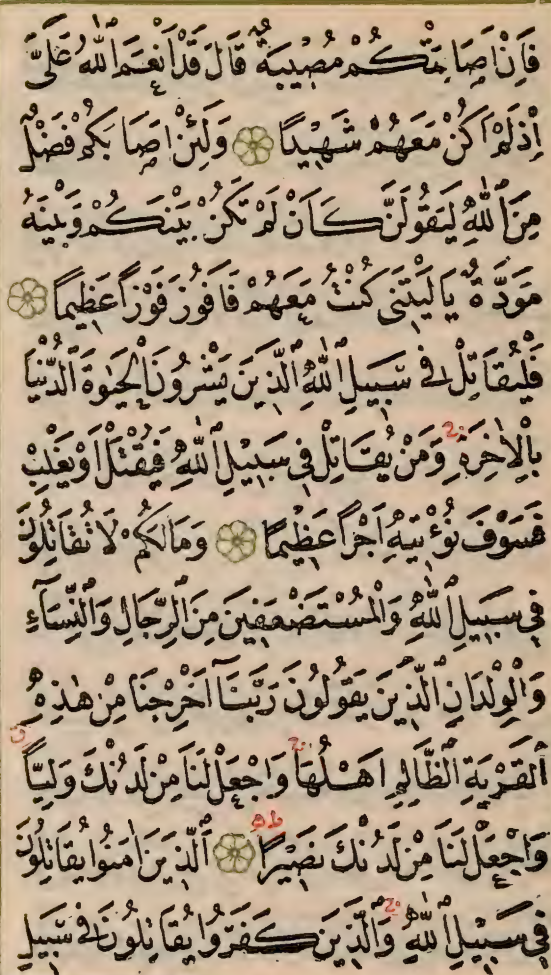 فَاِنْ اَصَابَتْكُمْ مُصِيبَةٌ قَالَ قَدْ اَنْعَمَ اللّٰهُ عَلَيَّ
اِذْ لَمْ اَكُنْ مَعَهُمْ شَهِيدًا ۝ وَلَئِنْ اَصَابَكُمْ فَضْلٌ
مِنَ اللّٰهِ لَيَقُولَنَّ كَاَنْ لَمْ تَكُنْ بَيْنَكُمْ وَبَيْنَهُ
مَوَدَّةٌ يَا لَيْتَنِي كُنْتُ مَعَهُمْ فَاَفُوزَ فَوْزًا عَظِيمًا ۝
فَلْيُقَاتِلْ فِي سَبِيلِ اللّٰهِ الَّذِينَ يَشْرُونَ الْحَيٰوةَ الدُّنْيَا
بِالْاٰخِرَةِ وَمَنْ يُقَاتِلْ فِي سَبِيلِ اللّٰهِ فَيُقْتَلْ اَوْ يَغْلِبْ
فَسَوْفَ نُؤْتِيهِ اَجْرًا عَظِيمًا ۝ وَمَا لَكُمْ لَا تُقَاتِلُونَ
فِي سَبِيلِ اللّٰهِ وَالْمُسْتَضْعَفِينَ مِنَ الرِّجَالِ وَالنِّسَآءِ
وَالْوِلْدَانِ الَّذِينَ يَقُولُونَ رَبَّنَآ اَخْرِجْنَا مِنْ هٰذِهِ
الْقَرْيَةِ الظَّالِمِ اَهْلُهَا وَاجْعَلْ لَنَا مِنْ لَدُنْكَ وَلِيًّا
وَاجْعَلْ لَنَا مِنْ لَدُنْكَ نَصِيرًا ۝ اَلَّذِينَ اٰمَنُوا يُقَاتِلُونَ
فِي سَبِيلِ اللّٰهِ وَالَّذِينَ كَفَرُوا يُقَاتِلُونَ فِي سَبِيلِ